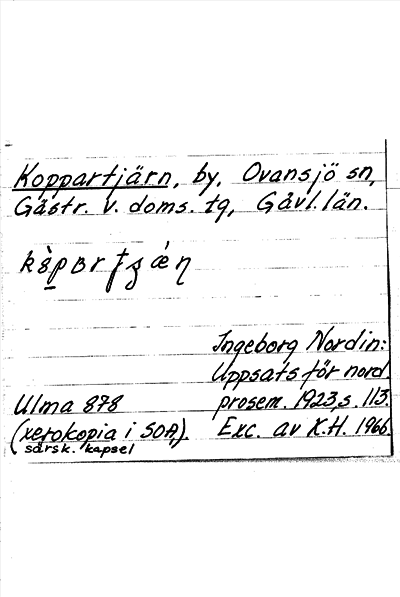 Koppartjärn, by, Ovansjö sn,
Gästr. v. doms. tg, Gävl. län.
Ingeborg Nordin:
Uppsats för nord.
Ulma 878 prosem. 1923, s. 113.
(xerokopia i SOA). Exc. av K.H. 1966.
särsk. kapsel